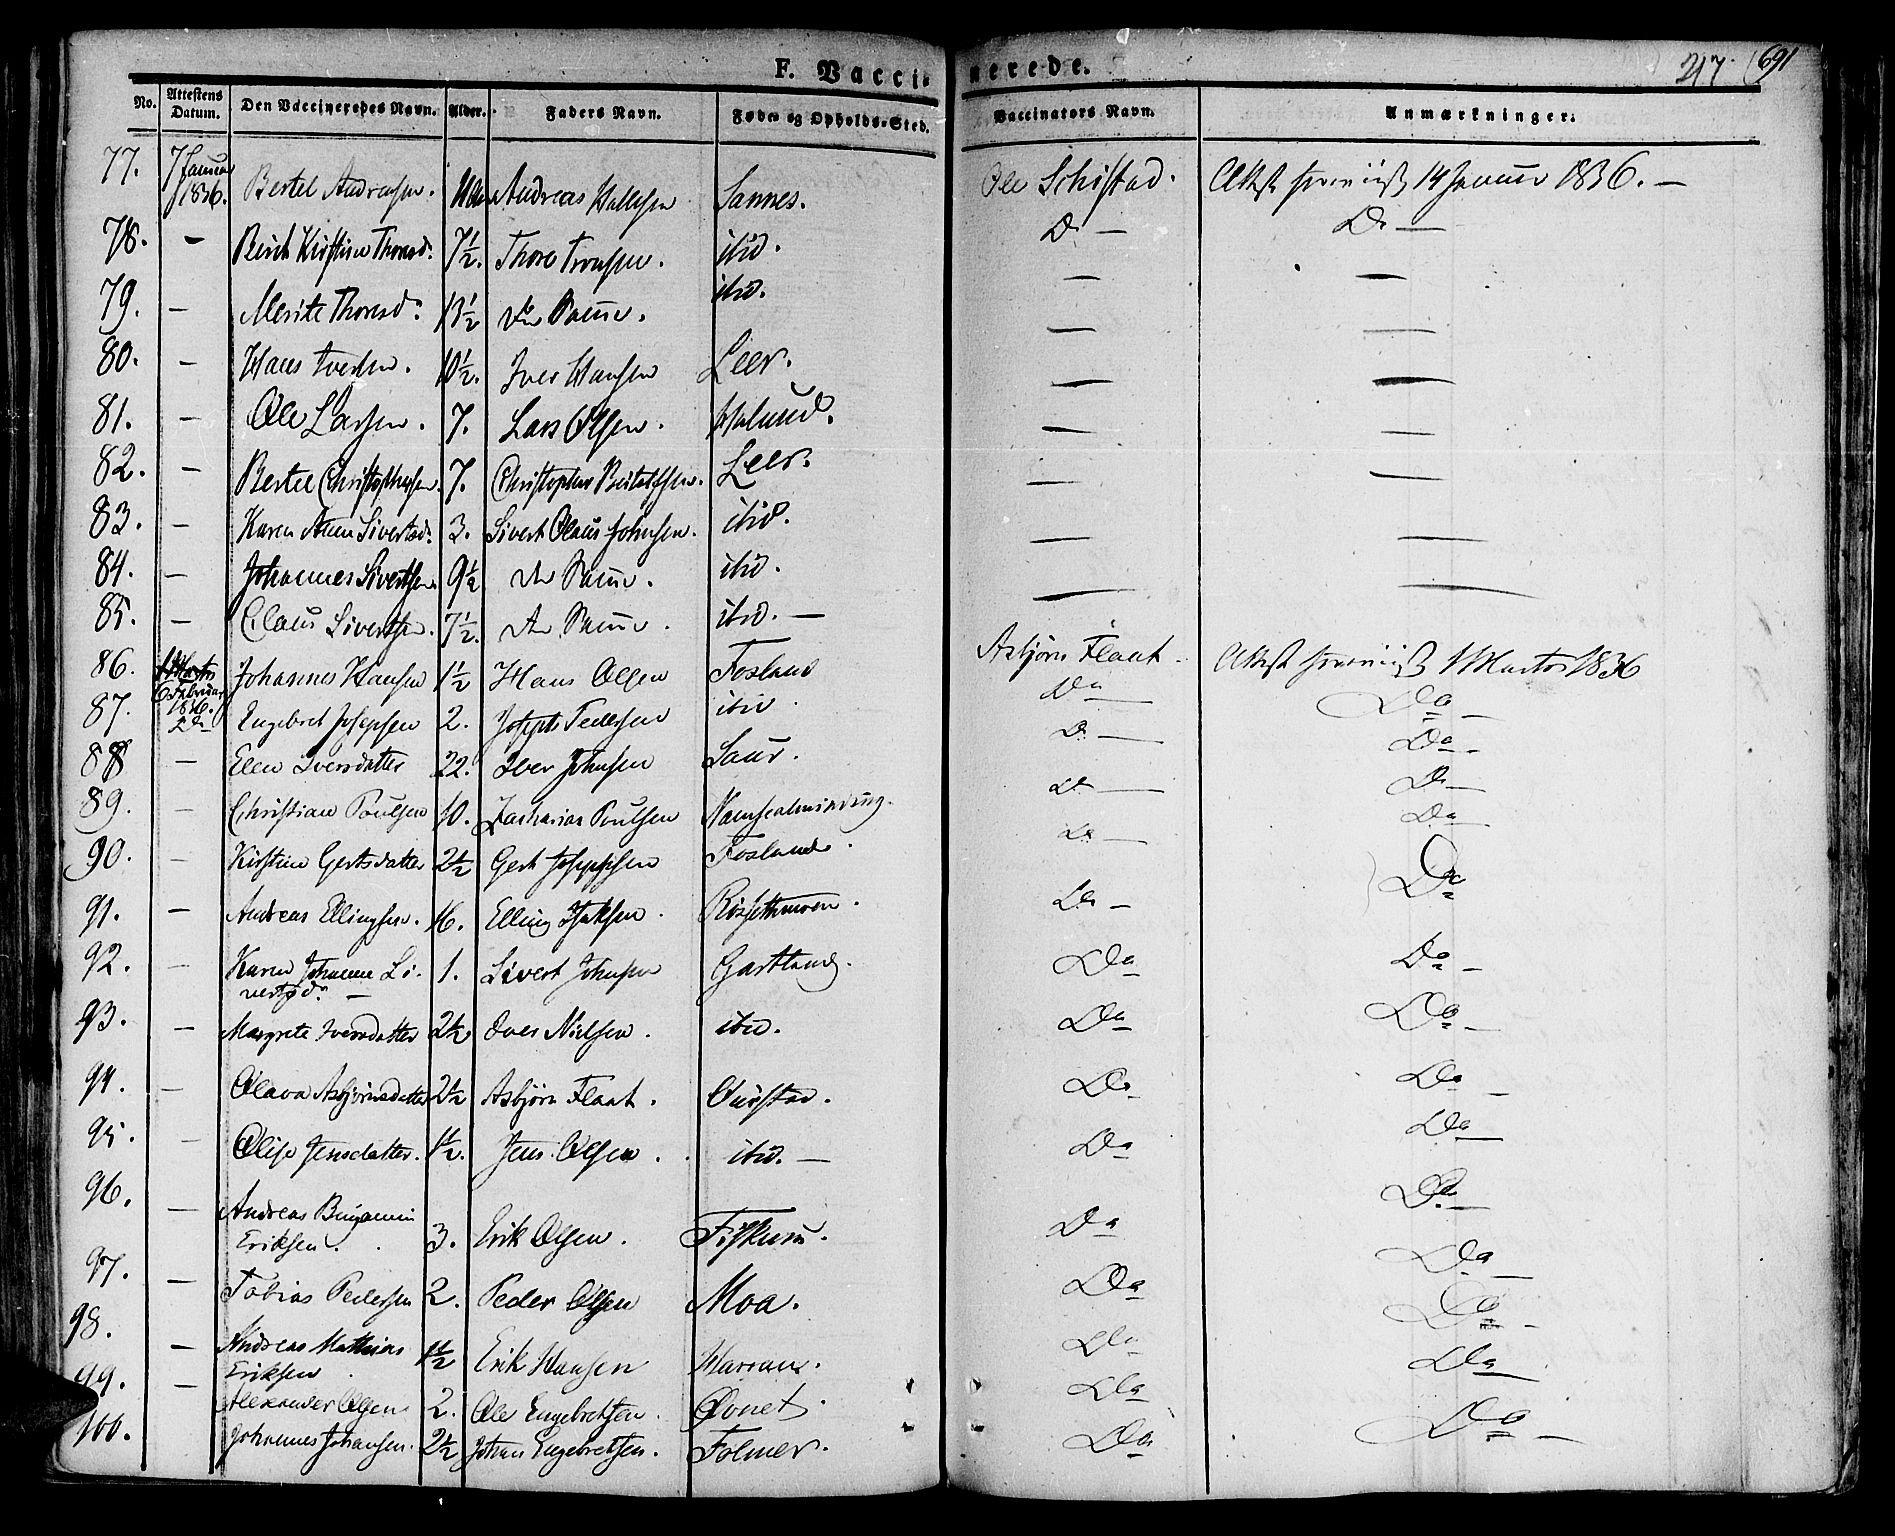 F. Vaccinerede. 217. 691
No. Attestens Datum. Den Vaccineredes Navn. Alder. Faders Navn. Føde- og Opholds-Sted. Vaccinators Navn. Anmærkninger.
77. 7 Januar 1836. Bertel Andreasen. Andreas Sannes. Ole Schistad. 14 Januar 1836. —
78. — Thoresd. 7½. Thore ibid. D. — D. —
79. — Merite Thoresd. 13½ den Samme. ibid. — —
80. — Hans Iversen. 10½. Iver Hansen Leer. — —
81. — Ole Larsen. 7. Lars Olsen. Halund. — —
82. — Bertel Christophersen. 7. Christopher Leer. — —
83. — Karen Anne Sivertsd. 3. Sivert Olaus Johnsen. ibid. — —
84. — Johannes Sivertsen. 9½ den Samme. ibid. — —
85. — Olaus Sivertsen. 7½. den Samme. ibid. — — —
86. Johannes Hansen 1½ Hans Olsen Fosland Asbjörn Flaat. 1 Martii 1836
87. 6 Februar 1836. Engebret Josepsen 2. Joseph Pedersen ibid Do — Do —
88 — Elen Iversdatter 22. Iver Johnsen Saur. D. — Do —
89. — Christian Poulsen 10. Zacharias Poulsen Namsealminding. D. — D. —
90. — Kirstine Gertsdatter 2½ Gert Josephsen Fosland. Do — Do —
91. — Andreas Ellingsen. 16. Elling Isaksen. Rössethmoen. Do — Do
92. — Karen Johanne Si-
vertsd. — 1. Sivert Johnsen Gartland. Do Do —
93. — Margrete Iversdatter 2½ Iver Nielsen. ibid. Do Do —
94. — Olava Asbjörnsdatter 2½ Asbjörn Flaat. Do Do —
95. — Olise Jensdatter. 1½. Jens Olsen. ibid. — Do Do —
96. — Andreas Benjamin
Eriksen. 3. Erik Olsen. Fiskum. Do Do —
97. — Tobias Pedersen 2. Peder Olsen Moa. Do Do —
98. — Andreas Mathias
Eriksen 1½ Erik Hansen Harran. Do Do —
99. — Alexander Olsen 2. Ole Engebretsen. Øvnet. Do Do —
100. Johannes Johansen. 2½ Johan Engebretsen. Folmer. Do Do —